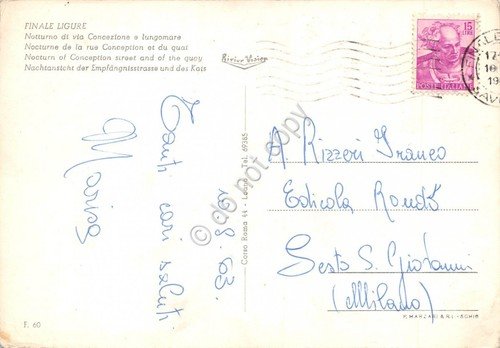 FINALE LIGURE
Notturno di via Concezione e lungomare
Nocturne de la rue Conception et du quai
Nocturn of Conception street and of the quay
Nachtansicht der Empfängnisstrasse und des Kais
15
LIRE
POSTE ITALIANE
10.8.63.
Tanti cari saluti
Marica
Corso Roma 44 - Loano - Tel. 69385
do not copy
A. Rizzeri Franco
Edicola Rondò
Sesto S. Giovanni
(Milano)
F. 60